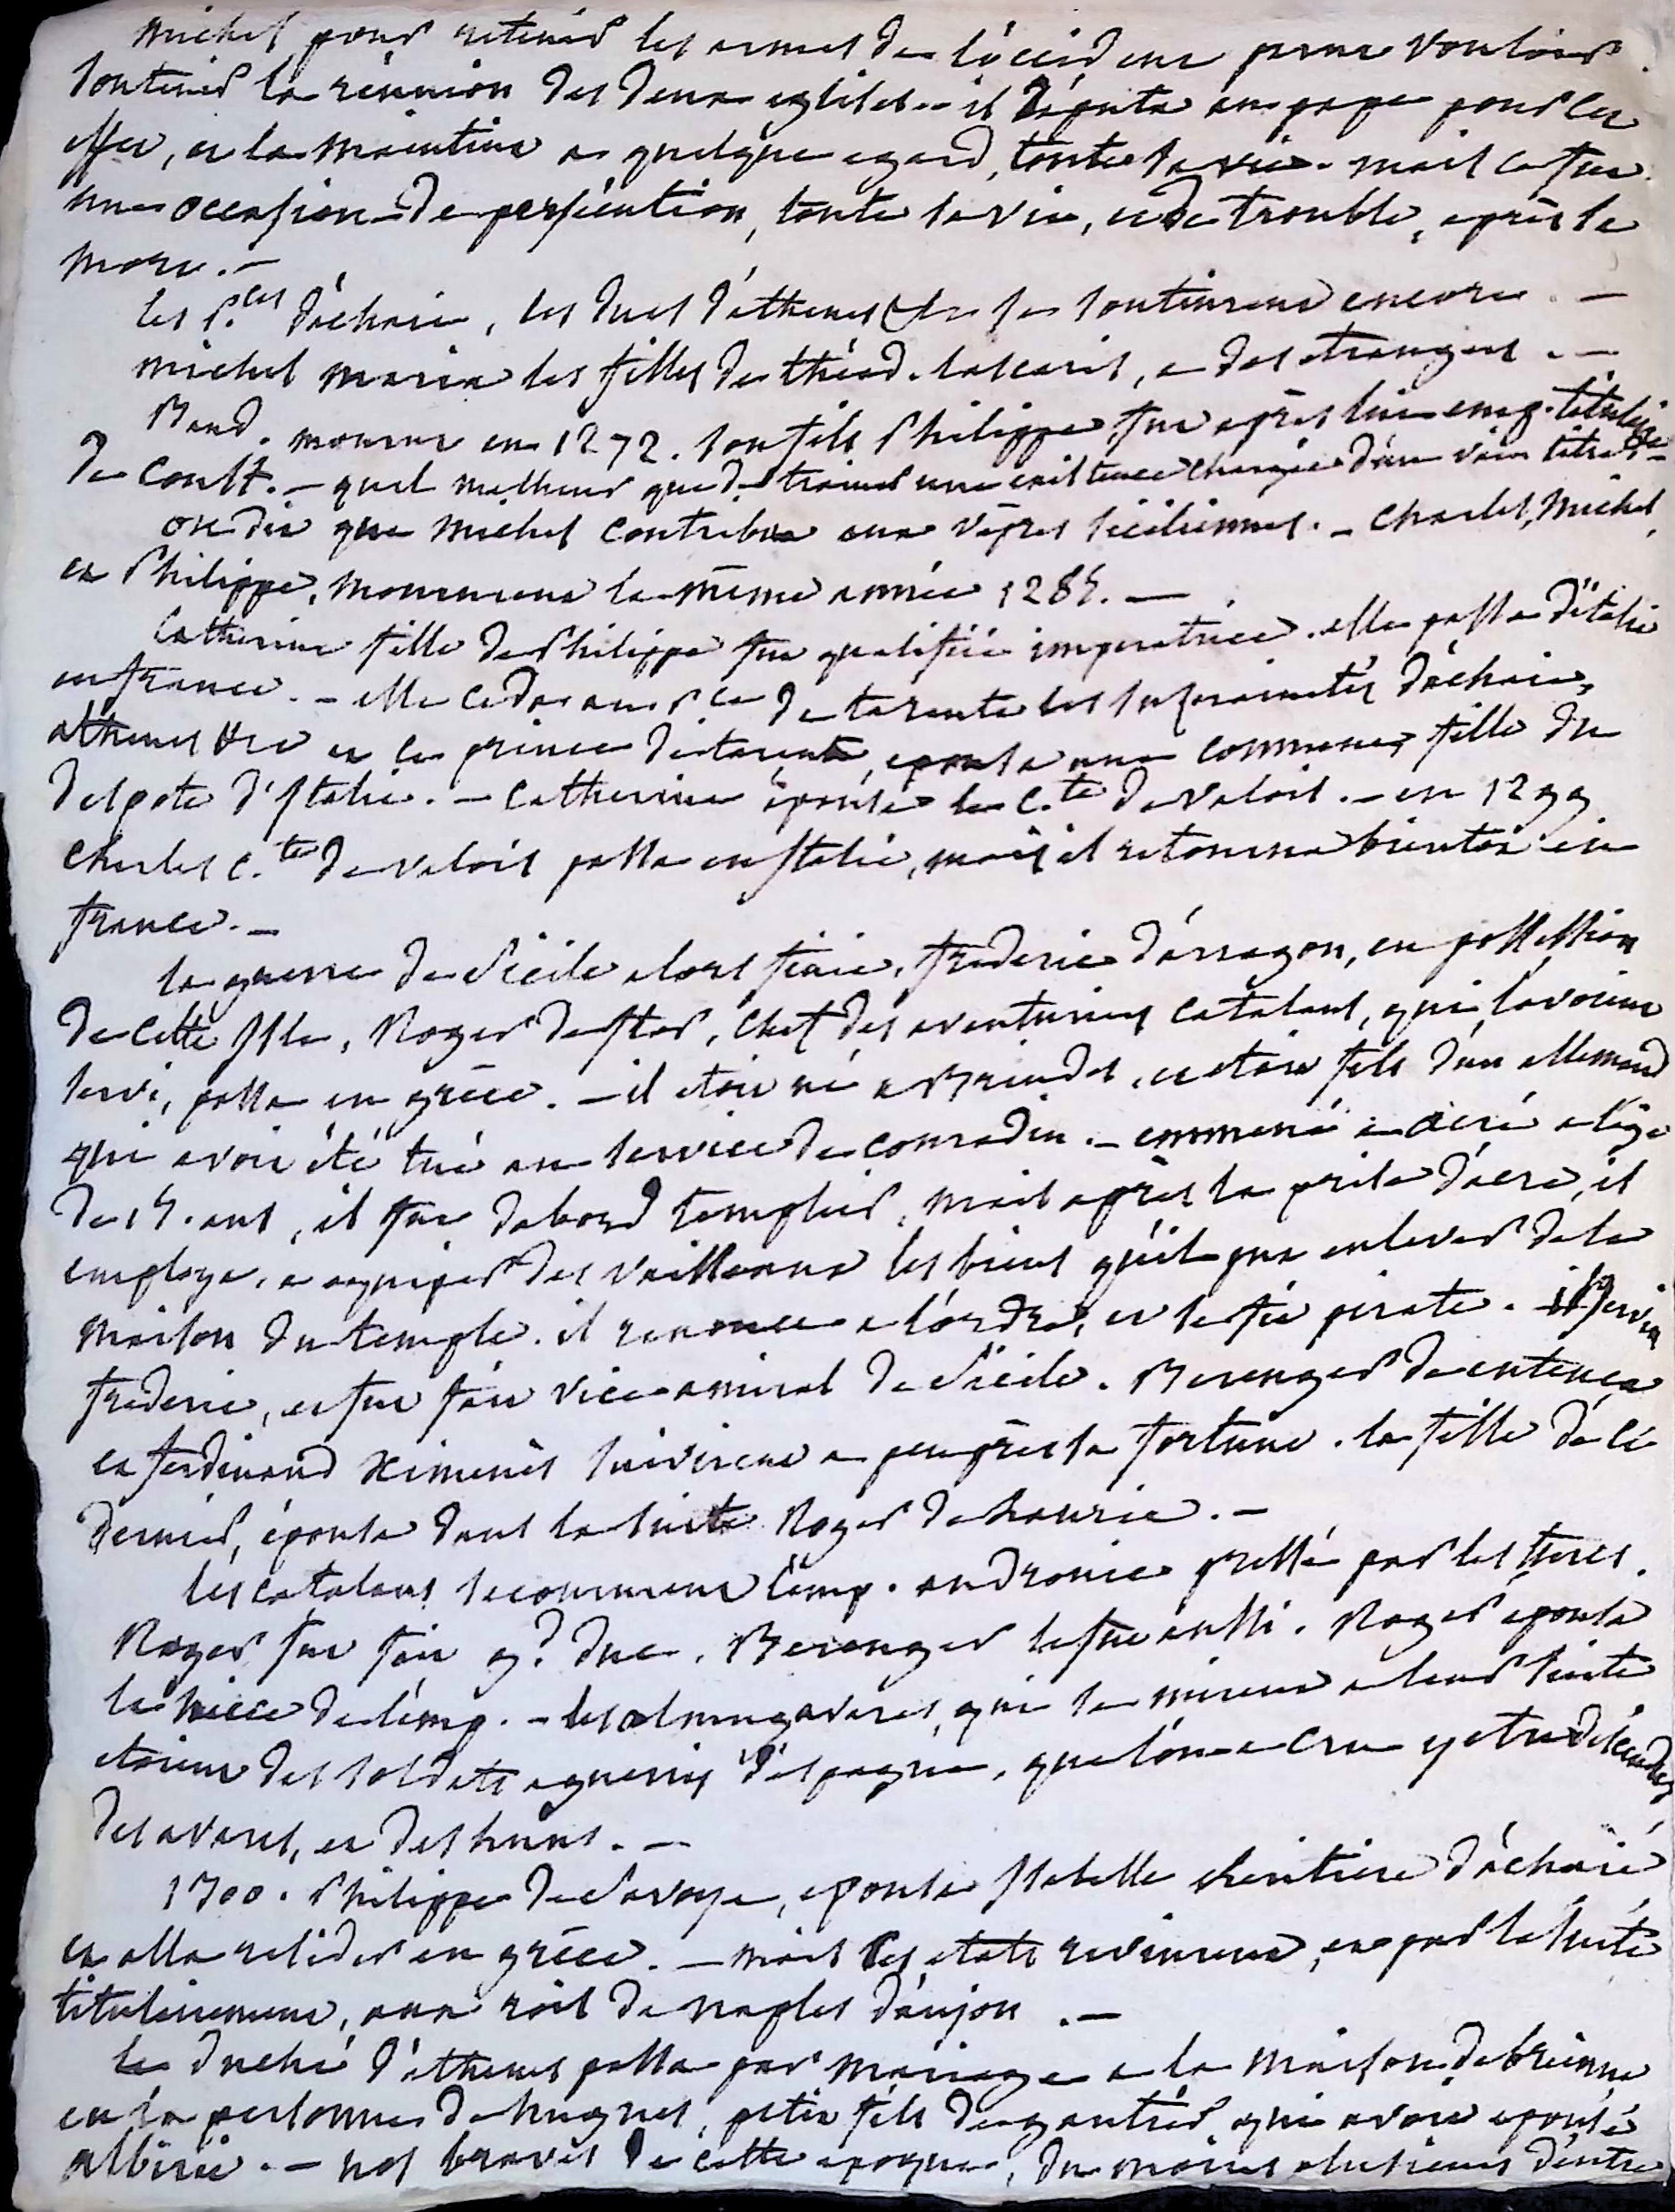 michel pour retenir les armes de l'occident parut vouloir
soutenir la réunion des deux eglises. - il députa au pape pour cet
effet, et la maintint a quelque egard, toute sa vie. mais ce fut
une occasion de persécution, toute sa vie, et de trouble, après sa
mort. -
les p.ces d'achaie, les ducs d'athenes &c se soutinrent encore. -
michel maria les filles de théod. lascaris, a des etrangers. -
Baud. mourut en 1272. son fils Philippe fut après lui emp. titulaire
de Const. - quel malheur que de trainer une existence chargée d'un vain titre. -
on dit que michel contribua aux vêpres siciliennes. - Charles, Michel,
et Philippe, moururent la même année 1285. -
Catherine fille de Philippe fut qualifiée imperatrice. elle passa d'italie
en france. - elle ceda au p.ce de tarente les suzerainetés d'achaie,
athenes &c et le prince de tarente, epousa une commene, fille du
despote d'Italie. - Catherine épousa le C.te de valois. - en 1299
Charles C.te de valois passa en Italie, mais il retourna bientôt en
france. -
la guerre de Sicile alors finie, frederic d'arragon, en possession
de cette Isle, Roger de flor, chef des aventuriers catalans, qui l'avoient
servi, passa en grèce. - il etoit né a Brindes, et etoit fils d'un allemand
qui avoit été tué au service de conradin. - emmené a acre a l'age
de 15. ans, il fut d'abord templier, mais après la prise d'acre, il
employa, a equiper des vaisseaux les biens qu'il put enlever de la
maison du temple. il renonca a l'ordre, et se fit pirate. il servit
frederic, et fut fait vice amiral de Sicile. Berenger de entenca
et ferdinand Ximenès suivirent a peu près sa fortune. la fille de ce
dernier, épousa dans la suite Roger de Lauria. -
les catalans secoururent l'emp. andronic pressé par les turcs.
Roger fut fait g.d duc. Berenger le fut aussi. Roger epousa
la niece de l'emp. - les almugavares, qui se mirent a leur suite
etoient des soldats aguerris d'espagne, que l'on a cru y etre descendus
des avares, et des huns. -
1300. Philippe de Savoye, epousa Isabelle heritiere d'achaie
et alla resider en grèce. - mais ses etats revinrent, et par la suite
titulairement, aux rois de naples d'anjou. -
le duché d'athenes passa par mariage a la maison de brienne
en la personne de hugues, petit fils de gautier qui avoit epousé
albirie. - nos braves de cette epoque, du moins plusieurs d'entre